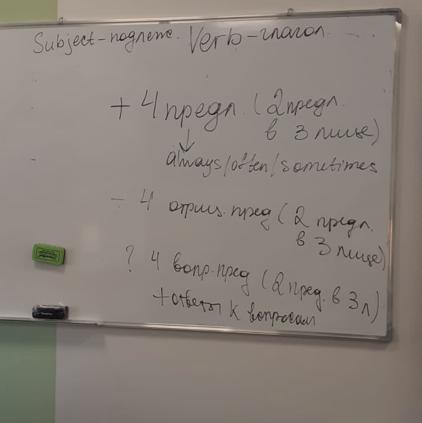 Subject-подлеж. Verb-глагол.
+ 4 предл. (2 предл.
в 3 лице)
always/often/sometimes
- 4 отриц. пред (2 предл.
в 3 лице)
? 4 вопр. пред (2 пред. в 3 л)
+ ответы к вопросам